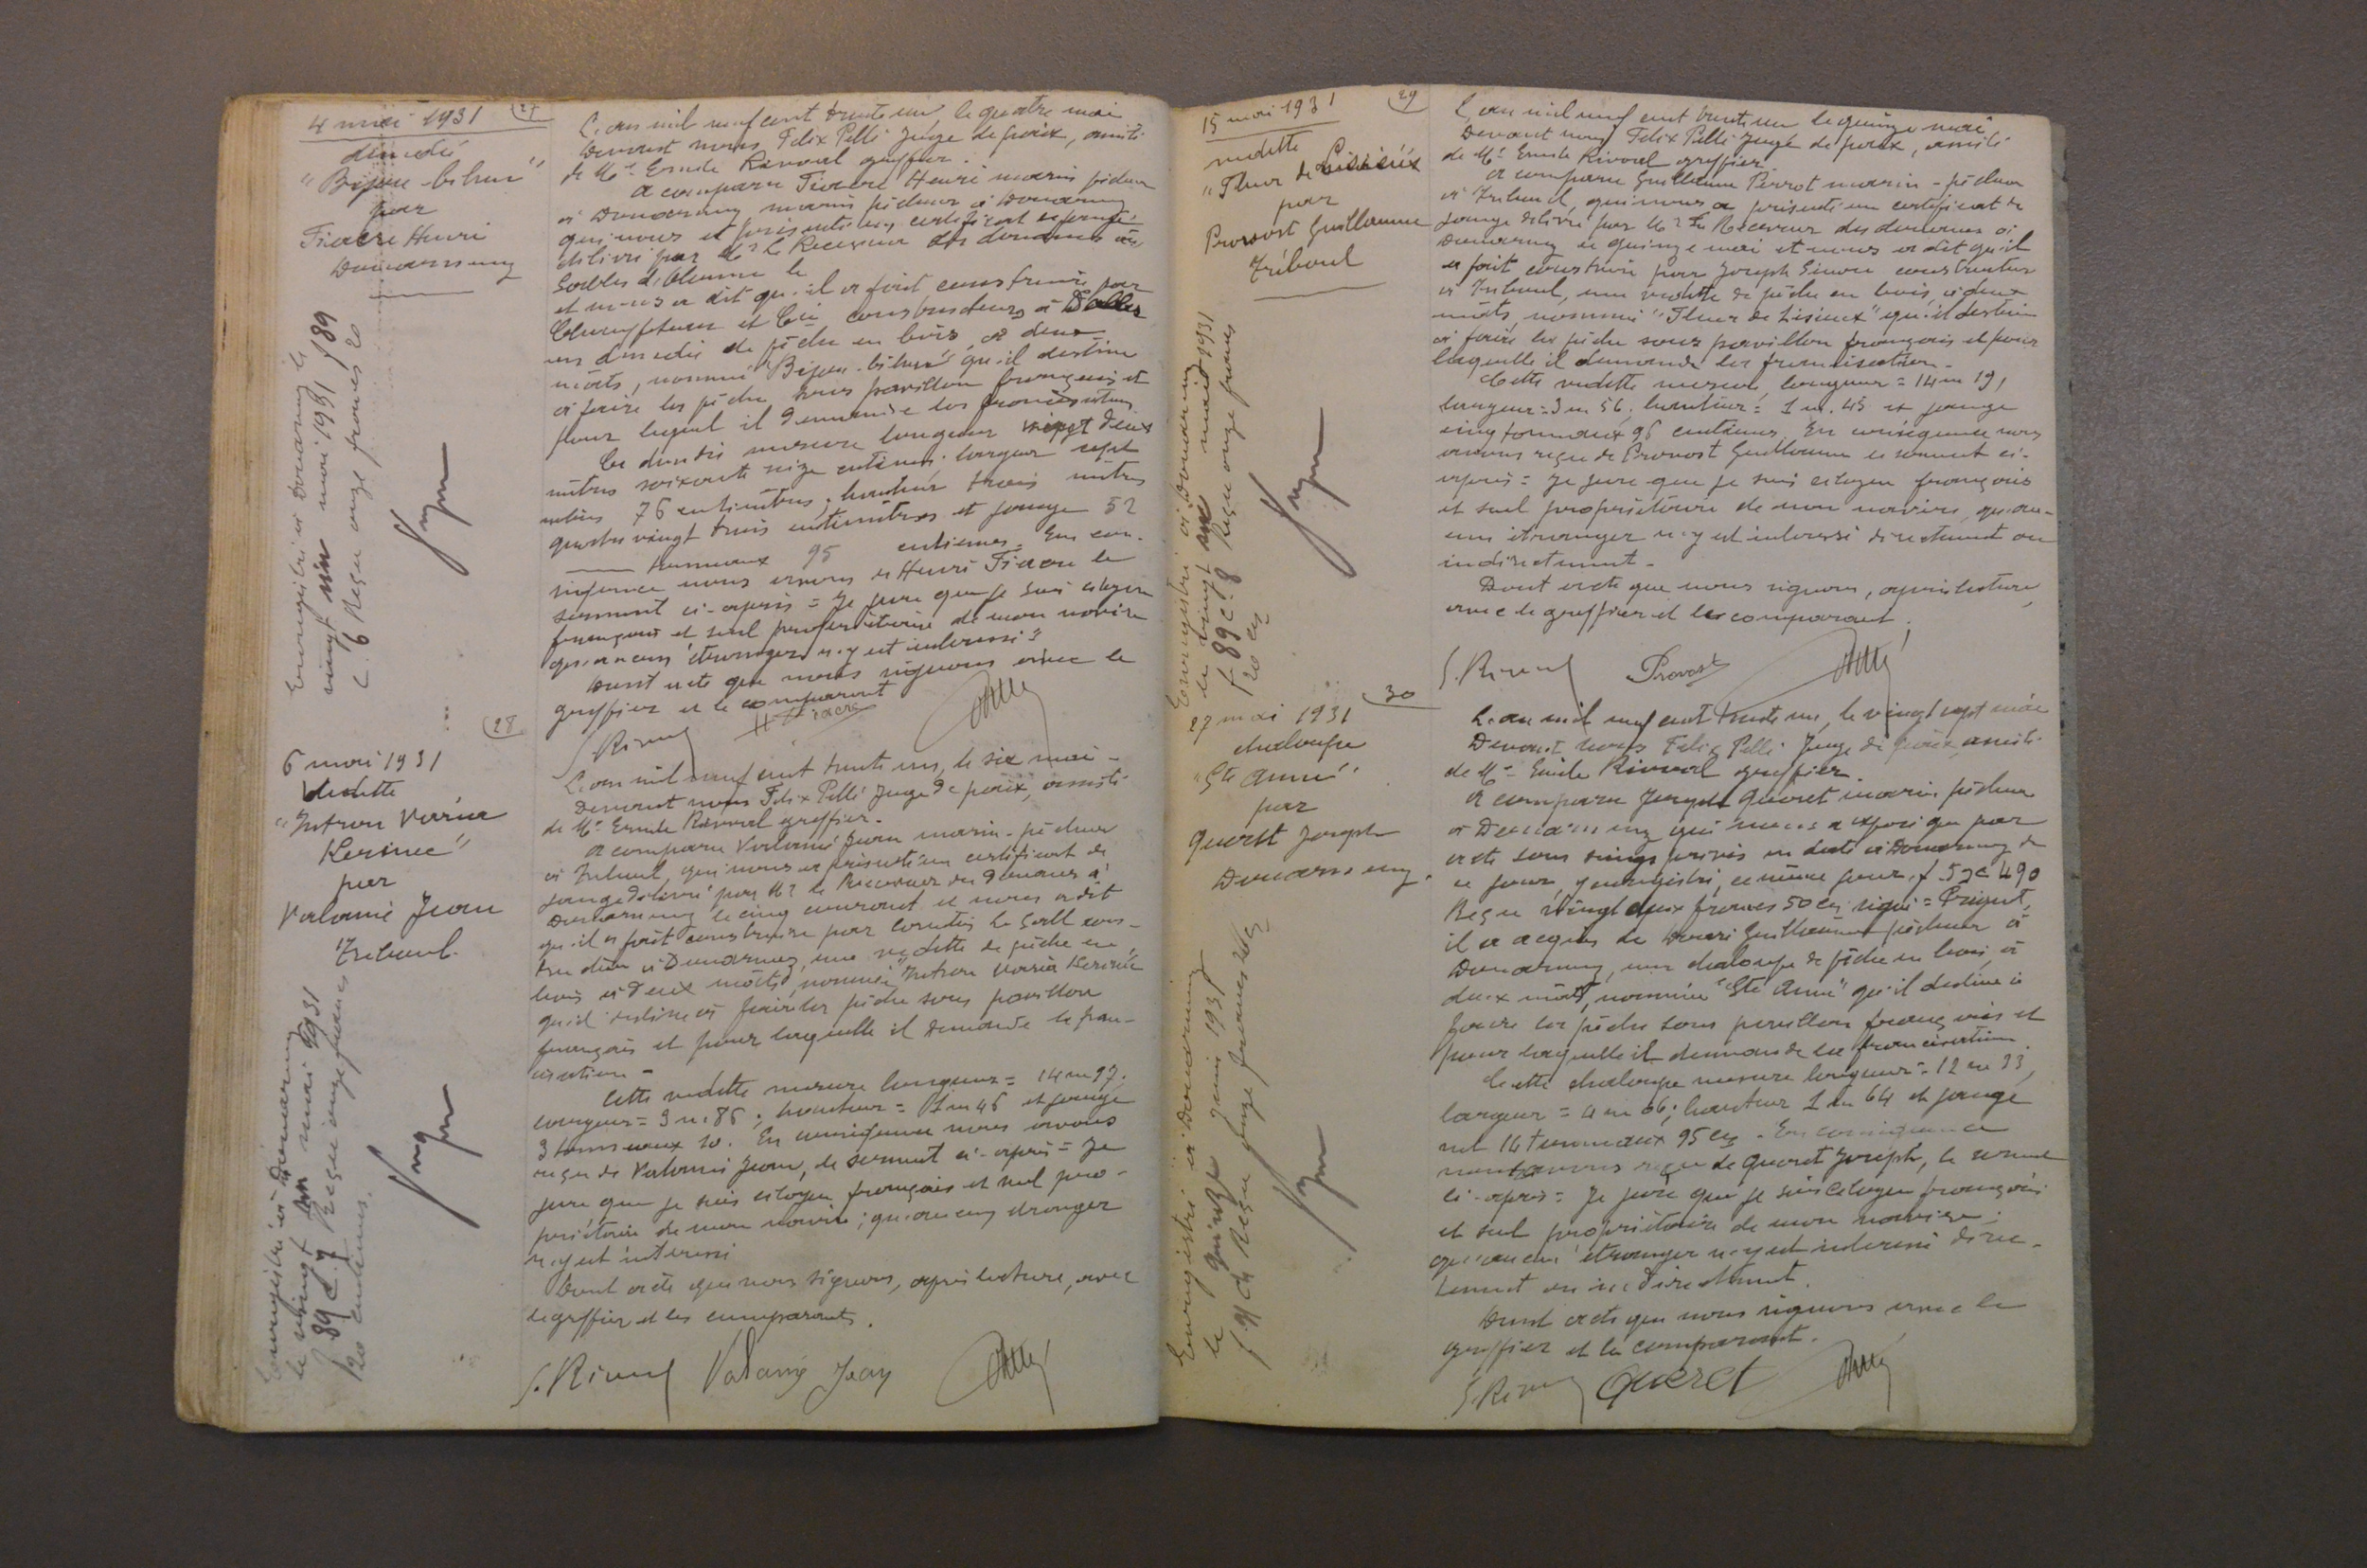 4 mai 1931
27
dundée
"Bijou-bihen"
par
Fiacre Henri
Douarnenez
Enregistré à Douarnenez le
vingt un mai 1931 f 89
c. 6 Reçu onze francs 20
L'an mil neuf cent trente un, le quatre mai
Devant nous Felix Pellé Juge de paix, assisté
de Me Emile Rivoal greffier.
a comparu Fiacre Henri marin pêcheur
à Douarnenez marin pêcheur à Douarnenez
qui nous a présenté un certificat de jauge
délivré par Mr le Receveur des douanes aux
Sables d'Olonne le
et nous a dit qu'il a fait construire par
et Cie constructeurs à
un dundée de pêche en bois, à deux
mâts, nommé "Bijou-bihen" qu'il destine
à faire la pêche sous pavillon français et
pour lequel il demande la francisation
Ce dundée mesure longueur vingt deux
mètres soixante seize centimes. largeur sept
mètres 76 centimètres; hauteur trois mètres
quatre vingt trois centimètres et jauge 52
tonneaux 95 centiemes. En con-
séquence nous avons de Henri Fiacre le
serment ci-après = Je jure que je suis citoyen
français et seul propriétaire de mon navire
qu'aucun étranger n'y est interessé
Dont acte que nous signons avec le
greffier et le comparant
S. Rivoal H Fiacre Pellé
28
6 mai 1931
Vedette
"Intron Varia
Kerinec"
par
Valamé Jean
Treboul.
Enregistré à Douarnenez
le vingt un mai 1931
f 89 c. 7 Reçu onze francs
20 centimes.
L'an mil neuf cent trente un, le six mai -
Devant nous Felix Pellé Juge de paix, assisté
de Me Emile Rivoal greffier.
a comparu Valamé Jean marin-pêcheur
à Treboul, qui nous a présenté un certificat de
jauge délivré par Mr le Receveur des Douanes à
Douarnenez le cinq courant et nous a dit
qu'il a fait construire par Corentin Le Gall cons-
tructeur à Douarnenez, une vedette de pêche en
bois à deux mâts, nommée "Intron Varia Kerinec
qu'il destine à faire la pêche sous pavillon
français et pour laquelle il demande la fran-
cisation -
Cette vedette mesure longueur = 14 m 97;
largeur = 3 m. 86; hauteur = 1 m 46 et jauge
3 tonneaux 10. En conséquence nous avons
reçu de Valamé Jean, le serment ci-après = Je
jure que je suis citoyen français et seul pro-
priétaire de mon navire; qu'aucun étranger
n'y est interessé
Dont acte que nous signons, après lecture, avec
le greffier et les comparants.
S. Rivoal Valamé Jean Pellé
15 mai 1931
29
vedette
"Fleur de Lisieux
par
Provost Guillaume
Tréboul
Enregistré à Douarnenez
le vingt un mai 1931
f. 89 c. 8 Reçu onze francs
20 ces
L'an mil neuf cent trente un le quinze mai
Devant nous Felix Pellé Juge de paix, assisté
de Me Emile Rivoal greffier
a comparu Guillaume Perrot marin-pêcheur
à Treboul, qui nous a présenté un certificat de
jauge délivré par Mr le Receveur des douanes à
Douarnenez le quinze mai et nous a dit qu'il
a fait construire par Joseph Simon constructeur
à Treboul, une vedette de pêche en bois, à deux
mâts, nommé "Fleur de Lisieux" qu'il destine
à faire la pêche sous pavillon français et pour
laquelle il demande la francisation -
Cette vedette mesure, longueur = 14 m 19,
largeur = 3 m 56; hauteur = 1 m. 45 et jauge
cinq tonneaux 96 centiemes, En conséquence nous
avons reçu de Provost Guillaume le serment ci-
après = Je jure que je suis citoyen français
et seul propriétaire de mon navire, qu'au-
cun étranger n'y est interessé directement ou
indirectement -
Dont acte que nous signons, après lecture,
avec le greffier et le comparant;
S. Rivoal Provost Pellé
30
27 mai 1931
chaloupe
"Ste Anne"
par
Queret Joseph
Douarnenez.
Enregistré à Douarnenez
le quinze juin 1931
Reçu onze francs 20 c
L'an mil neuf cent trente un, le vingt sept mai
Devant nous Felix Pellé Juge de paix, assisté
de Me Emile Rivoal greffier.
a comparu Joseph Queret marin pêcheur
à Douarnenez qui nous a exposé que par
acte sous seings privés en date à Douarnenez de
ce jour, enregistré, ce même jour, f. 53 c 490
Reçu vingt deux francs 50 ces signé = Prigent,
il a acquis de Guillaume pêcheur à
Douarnenez, une chaloupe de pêche en bois, à
deux mâts, nommée "Ste Anne" qu'il destine à
faire la pêche sous pavillon français et
pour laquelle il demande la francisation.
Cette chaloupe mesure longueur = 12 m 33,
largeur = 4 m 66; hauteur 1 m 64 et jauge
net 14 tonneaux 95 ces. En conséquence
nous avons reçu de Queret Joseph, le serment
ci-après = Je jure que je suis citoyen français
et seul propriétaire de mon navire;
qu'aucun étranger n'y est interessé direc-
tement ou indirectement.
Dont acte que nous signons avec le
greffier et le comparant.
S. Rivoal Queret Pellé